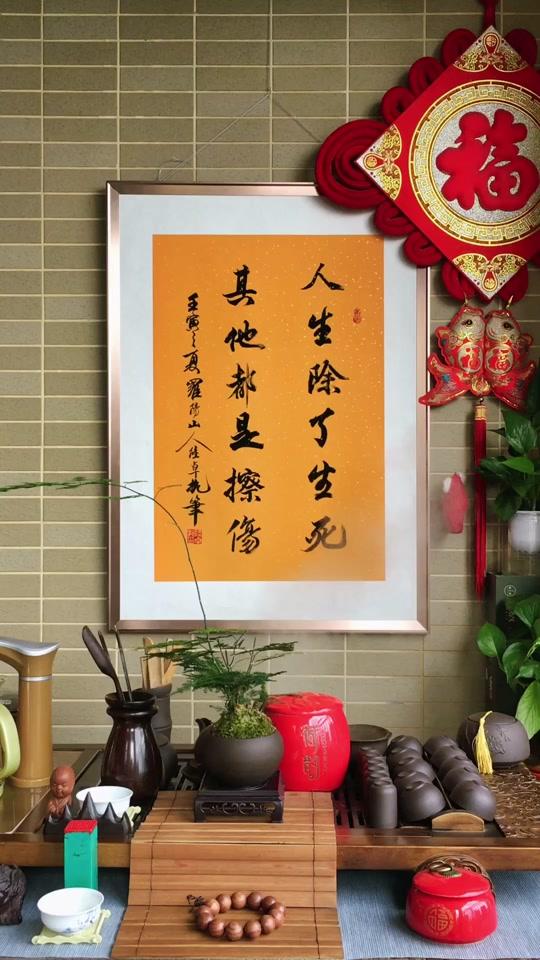 人生除了生死
其他都是擦傷
壬寅之夏羅陽山人陸卓執筆
福